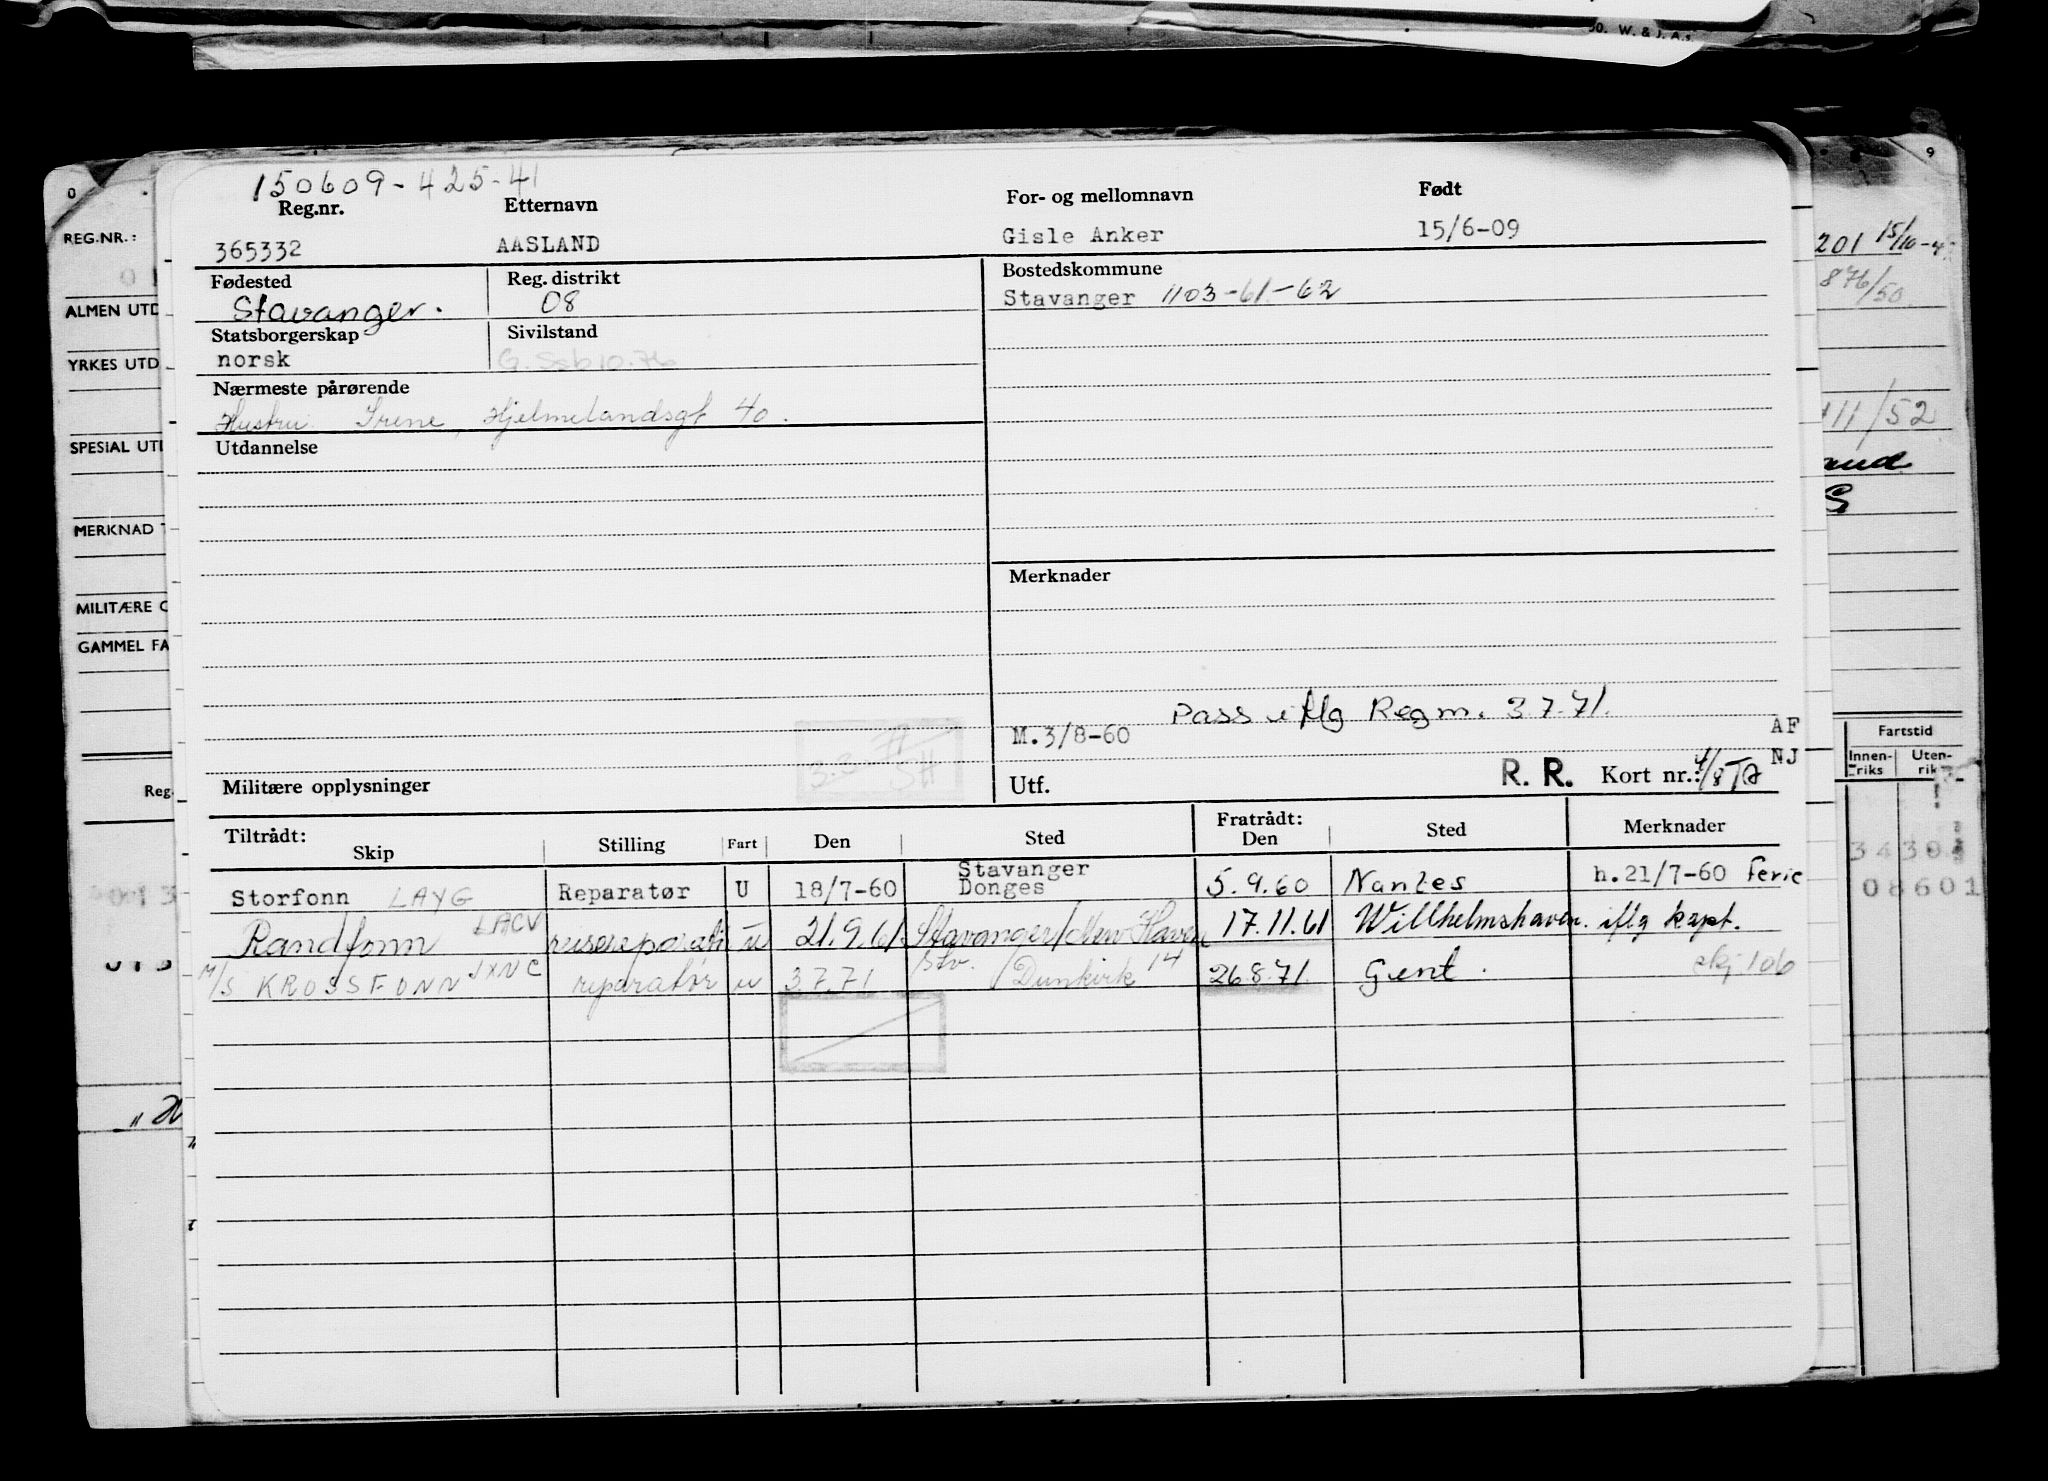 50. W. & J. A.s.
150609-425-41
Reg.nr. Etternavn For- og mellomnavn Født
365332 AASLAND Gisle Anker 15/6-09
Fødested Reg. distrikt Bostedskommune
Stavanger. 08 Stavanger 1103-61-62
Statsborgerskap Sivilstand
norsk G. Ssb 10.76
Nærmeste pårørende
Hustru Irene, Hjelmelandsgt 40.
Utdannelse
Merknader
Pass iflg Regm. 3.7.71.
M.3/8-60 AF
NJ
Militære opplysninger Utf. R. R. Kort nr.:
Tiltrådt: Fratrådt:
Skip Stilling Fart Den Sted Den Sted Merknader
Stavanger
Storfonn LAYG Reparatør U 18/7-60 Donges 5.9.60 Nantes h.21/7-60 Ferie
Randfonn LACV reisereparatør u 21.9.61 Stavanger/New Haven 17.11.61 Willhelmshaven. iflg kapt.
M/S KROSSFONN JXNC reparatør u 3.7.71 Stv. /Dunkirk 14 26.8.71. Gent. skj 106
REG.NR.:
ALMEN UTD
YRKES UTD
SPESIAL UTD
MERKNAD
MILITÆRE O
GAMMEL FA
Reg.
0
9
201 15/10-4
876/50
11/52
and
S
Fartstid
Innen- Uten-
riks rik
3430
08601